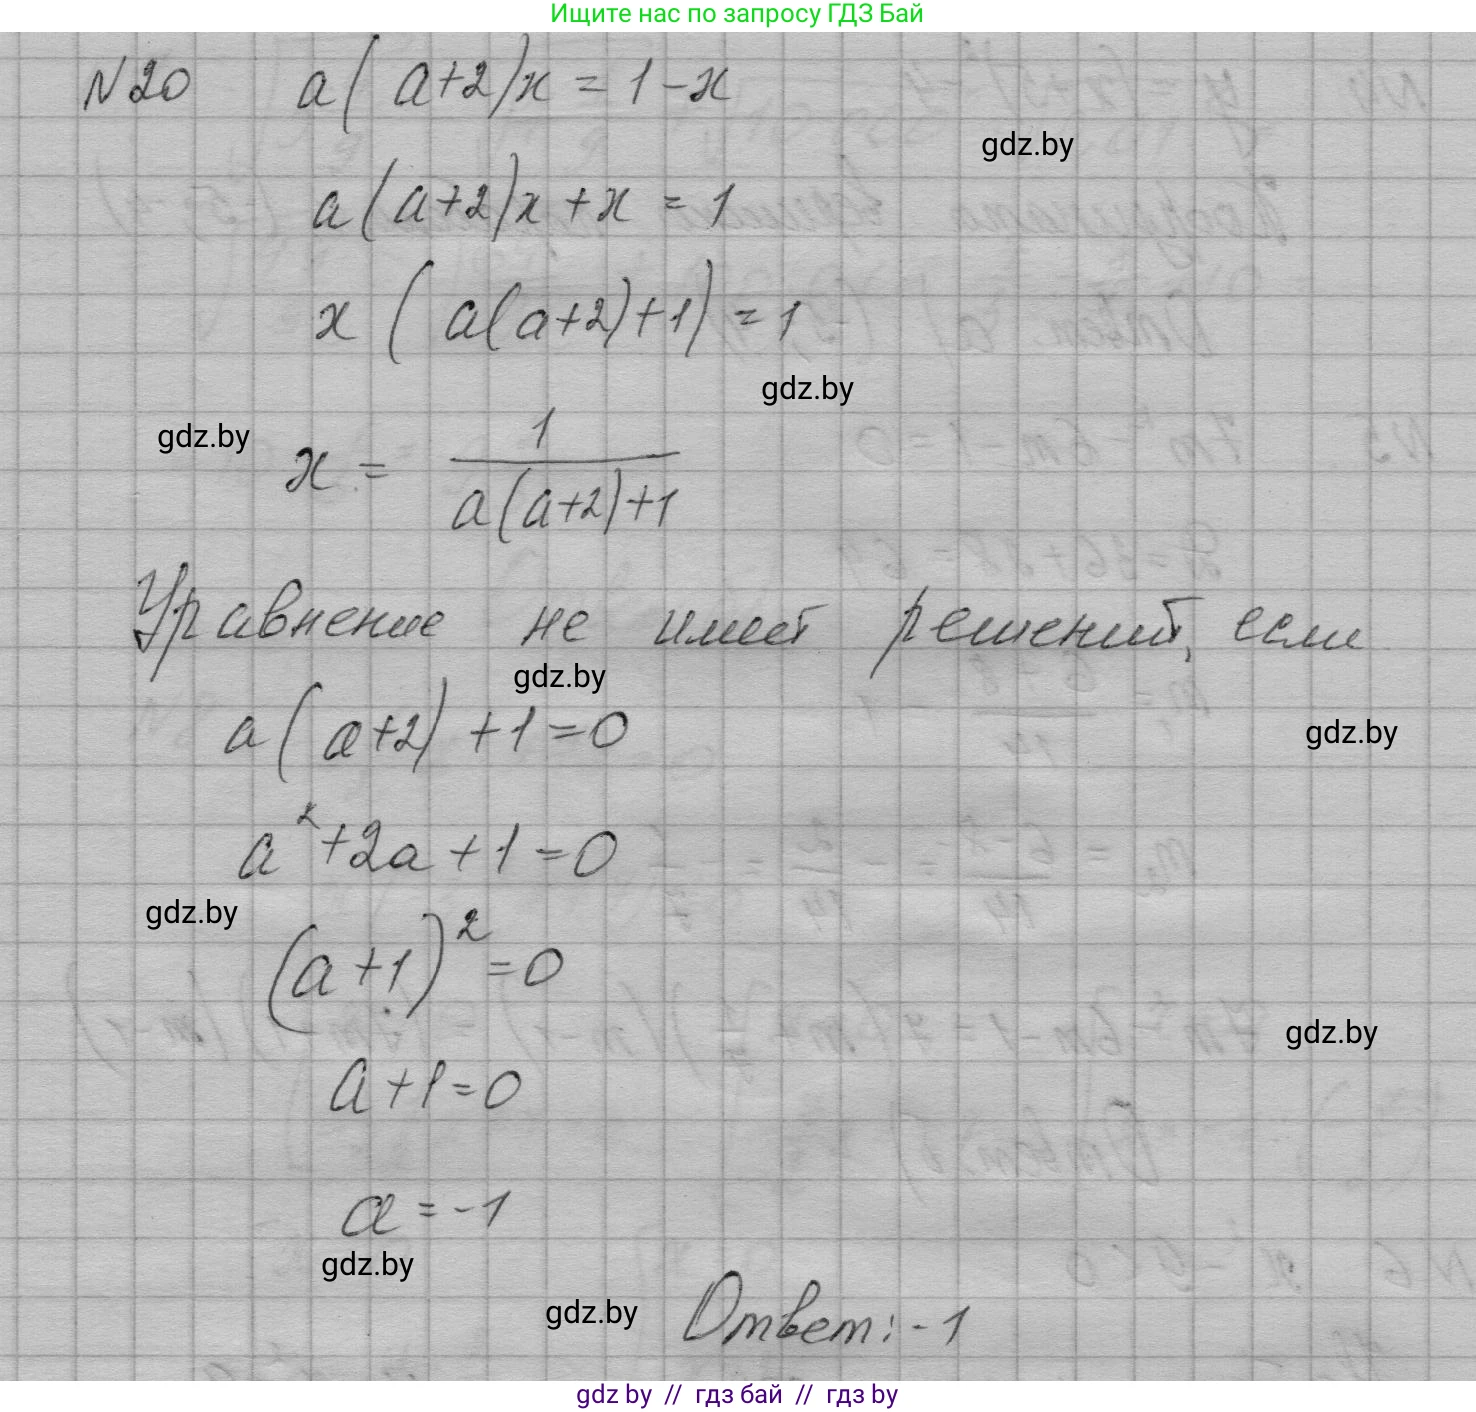 Ищите нас по запросу ГДЗ Бай
N20 a(a+2)x = 1-x
gdz.by
a(a+2)x + x = 1
x(a(a+2)+1) = 1
gdz.by
gdz.by
x = 1/(a(a+2)+1)
Уравнение не имеет решений, если
gdz.by
a(a+2)+1=0
gdz.by
a²+2a+1=0
gdz.by
(a+1)²=0
gdz.by
a+1=0
a=-1
gdz.by
gdz.by
Ответ: -1
gdz by // гдз бай // гдз by